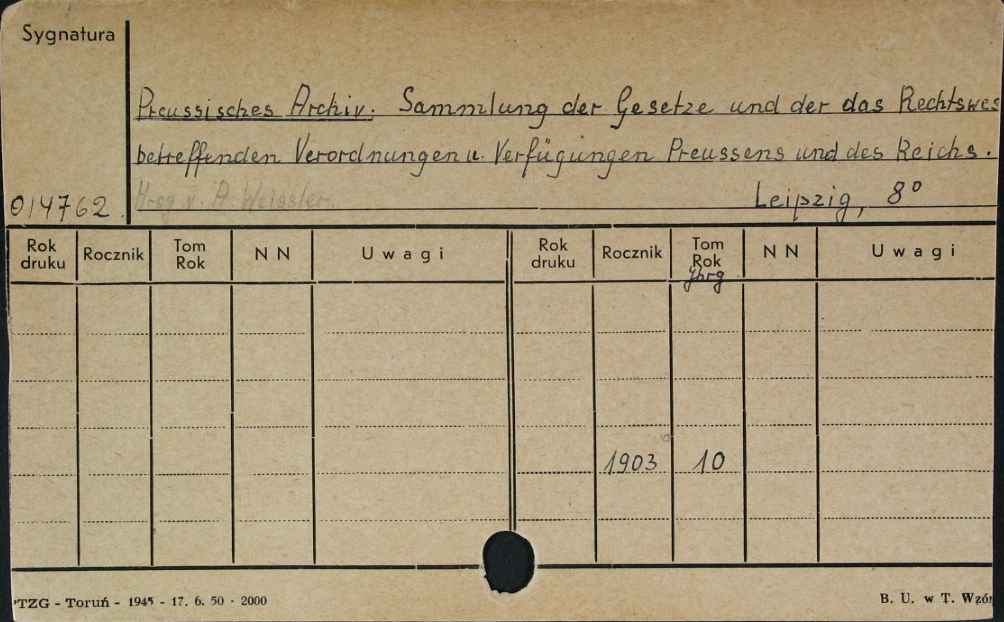 Sygnatura
Preussisches Archiv. Sammlung der Gesetze und der das Rechtswes
betreffenden Verordnungen u. Verfügungen Preussens und des Reichs.
014762. Hrsg v. A. Weissler. Leipzig, 8°
Rok druku Rocznik Tom Rok N N Uwagi Rok druku Rocznik Tom Rok Jhrg N N Uwagi
1903 10
TZG - Toruń - 1945 - 17. 6. 50 - 2000 B. U. w T. Wzór